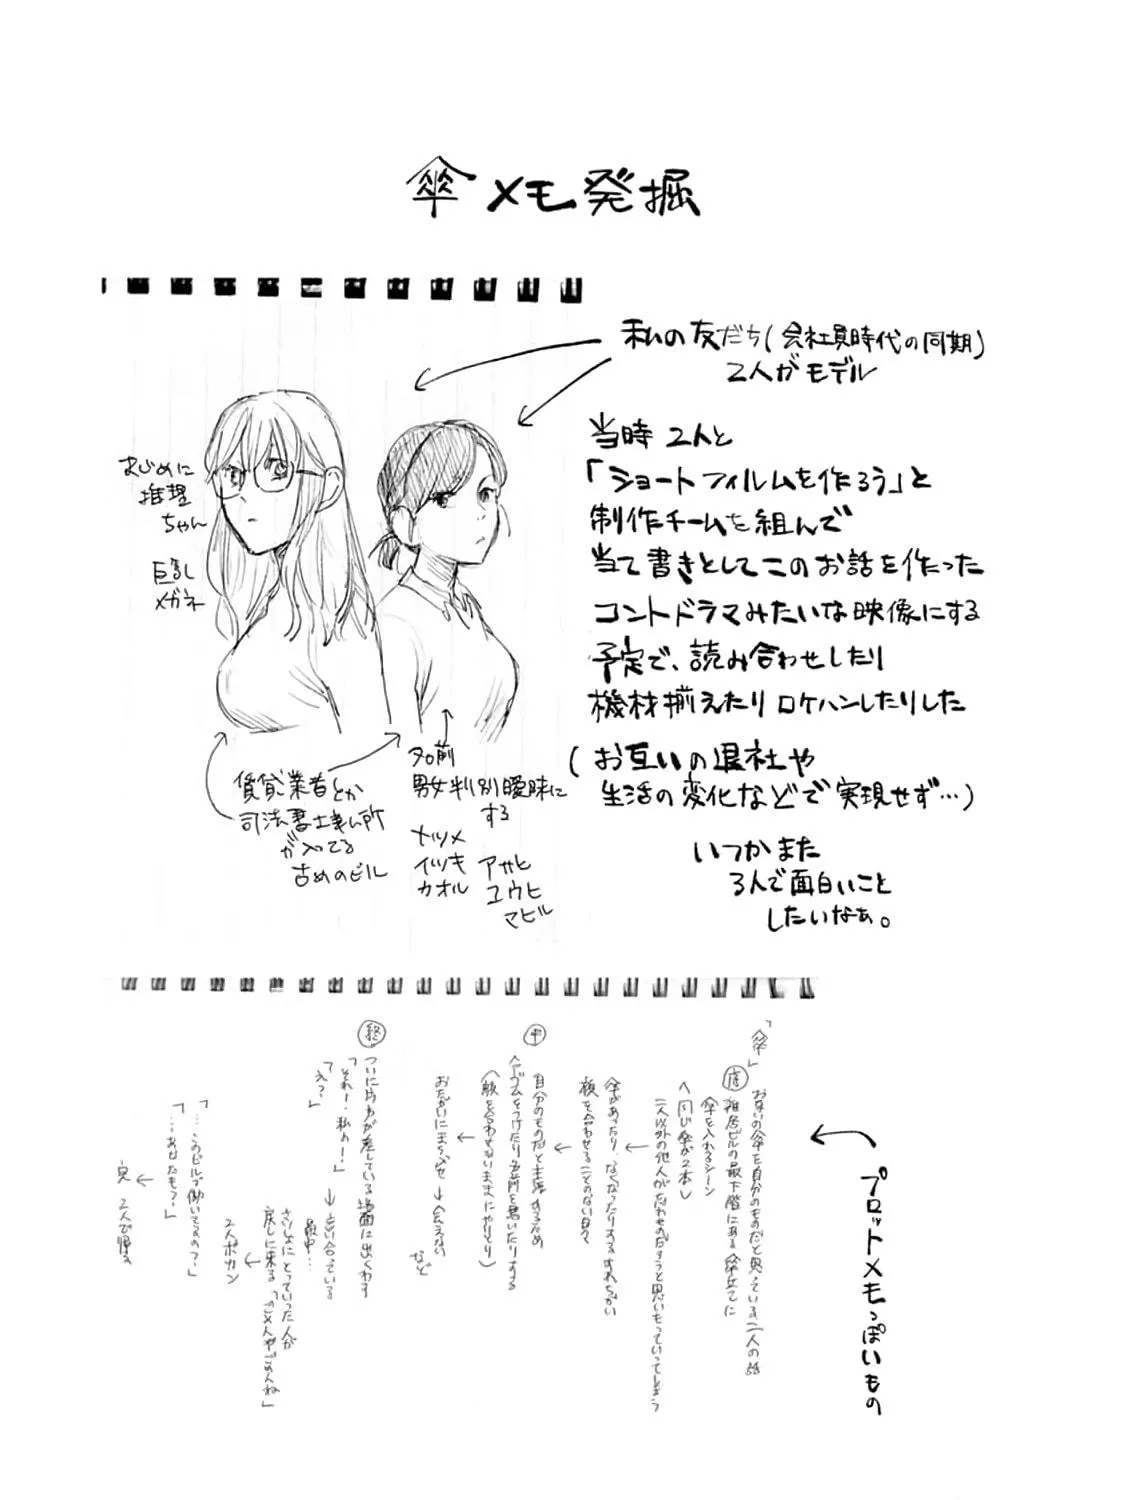 傘メモ発掘
私の友だち(会社員時代の同期)
2人がモデル
当時 2人と
「ショートフィルムを作ろう」と
制作チームを組んで
当て書きとしてこのお話を作った
コントドラマみたいな映像にする
予定で、読み合わせしたり
機材揃えたりロケハンしたりした
(お互いの退社や
生活の変化などで実現せず…)
いつかまた
3人で面白いこと
したいなぁ。
まじめに
推理
ちゃん
巨乳
メガネ
賃貸業者とか
司法書士事ム所
が入ってる
古めのビル
名前
男女判別曖昧に
する
ナツメ
イツキ
カオル
アサヒ
ユウヒ
マヒル
プロットメモっぽいもの
「傘」
お互いの傘を自分のものだと思っている二人の話
雑居ビルの最下階にある傘立てに
傘を入れるシーン
(同じ傘が2本)
二人以外の他人が
と思いもっていってしまう
傘があったり、なくなったりするすれちがい
顔を合わせることのない日々
中
自分のものだと主張するため
名前を書いたりする
(顔を合わせないままにやりとり)
おたがいにまちぶせ→会えない
など
終
ついに片方が差している場面に出くわす
「それー!私のー!」
「えっ」
→言い合っている
最中…
さいしょにとっていった人が
戻しに来る「ごめんやごめんね」
2人ポカン
「……このビルで働いてるの?」
「……あなたも?」
完 2人で帰る